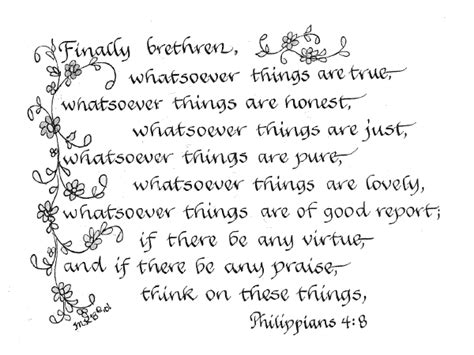 Finally brethren,
whatsoever things are true,
whatsoever things are honest,
whatsoever things are just,
whatsoever things are pure,
whatsoever things are lovely,
whatsoever things are of good report;
if there be any virtue,
and if there be any praise,
think on these things,
Philippians 4:8